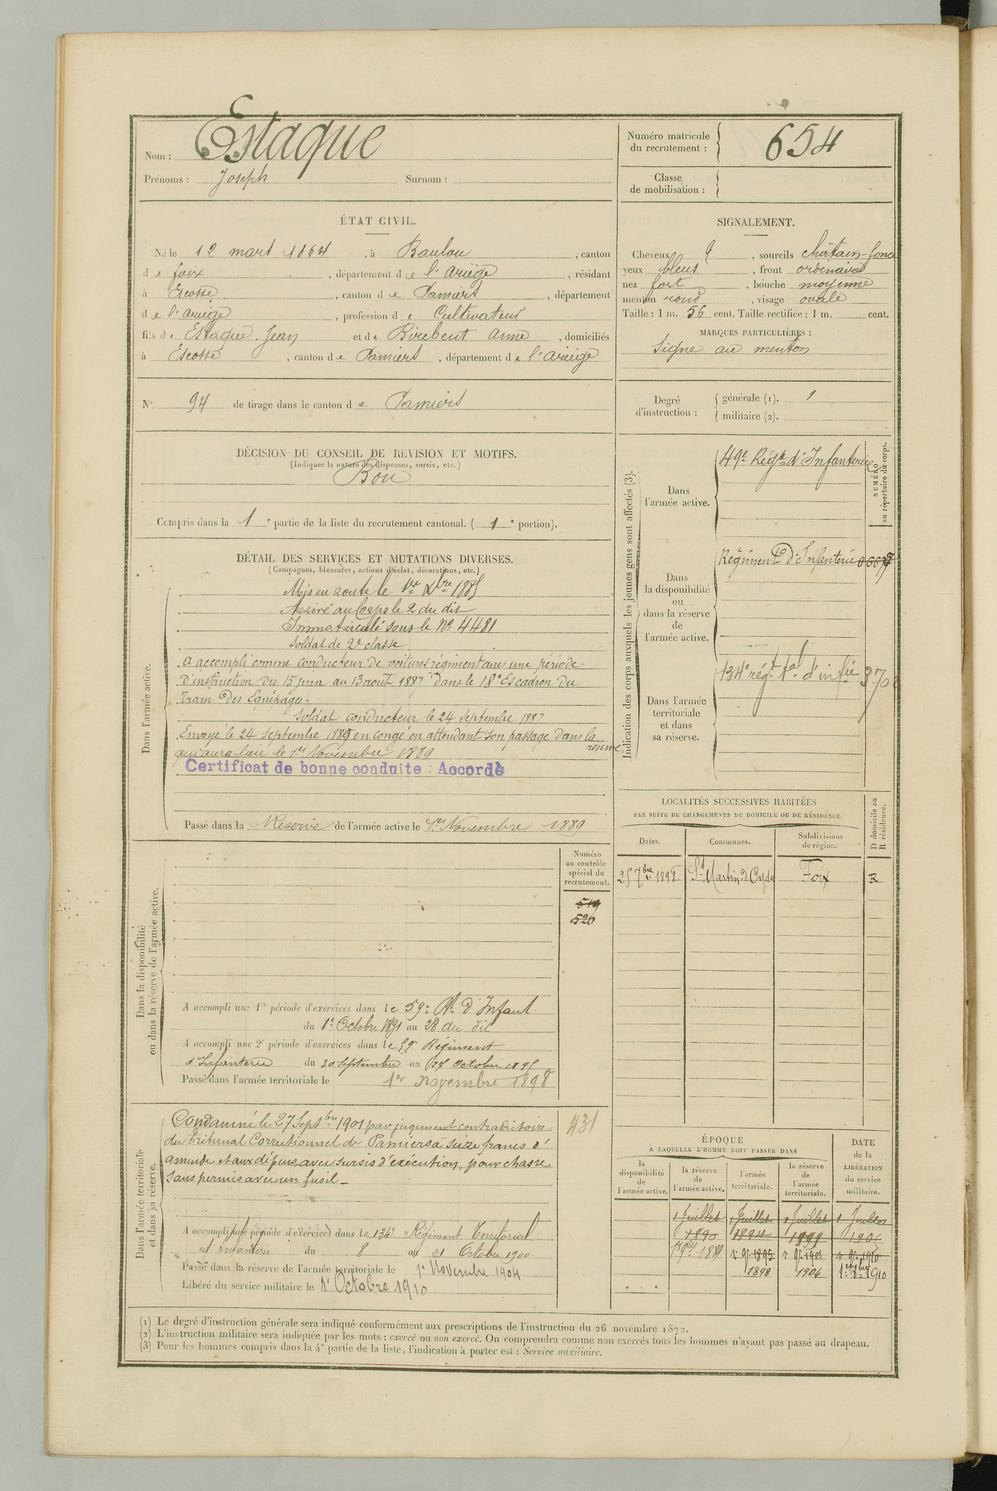 Nom : Estaque
Prénoms : Joseph Surnom :
Numéro matricule du recrutement : 654
Classe de mobilisation :
ÉTAT CIVIL.
Né le 12 mars 1864, à Baulou, canton
de foix, département de l'ariège, résidant
à Escosse, canton de Pamiers, département
de l'ariège, profession de Cultivateur
fils de Estaque Jean et de Biribent anne, domiciliés
à Escosse, canton de Pamiers, département de l'ariège
N° 94 de tirage dans le canton de Pamiers
SIGNALEMENT.
Cheveux, sourcils châtain-foncé
yeux bleus, front ordinaire
nez fort, bouche moyenne
menton rond, visage ovale
Taille : 1 m. 56 cent. Taille rectifiée : 1 m. cent.
MARQUES PARTICULIÈRES :
Signe au menton
Degré d'instruction : générale (1). 1
militaire (2).
DÉCISION DU CONSEIL DE REVISION ET MOTIFS.
(Indiquer la nature des dispenses, sursis, etc.)
Bon
Compris dans la 1e partie de la liste du recrutement cantonal. (1e portion).
DÉTAIL DES SERVICES ET MUTATIONS DIVERSES.
(Campagnes, blessures, actions d'éclat, décorations, etc.)
Dans l'armée active.
Mis en route le 1er Xbre 1885
Arrivé au Corps le 2 du dit
Immatriculé sous le N° 4481
Soldat de 2e classe
a accompli comme conducteur de voitures régimentaire une période
d'instruction du 15 juin au 13 août 1887 dans le 18e Escadron du
Train des Equipages.
Soldat conducteur le 24 Septembre 1887
Envoyé le 24 Septembre 1889 en congé en attendant son passage dans la réserve
qui aura lieu le 1er Novembre 1889
Certificat de bonne conduite : Accordé
Passé dans la Réserve de l'armée active le 1er Novembre 1889
Indication des corps auxquels les jeunes gens sont affectés (3).
NUMÉRO au répertoire du corps.
Dans l'armée active.
49e Régt d'Infanterie
Dans la disponibilité ou dans la réserve de l'armée active.
Régiment d'Infanterie
Dans l'armée territoriale et dans sa réserve.
134e régt tal d'inf
LOCALITÉS SUCCESSIVES HABITÉES
PAR SUITE DE CHANGEMENTS DE DOMICILE OU DE RÉSIDENCE.
Dates. Communes. Subdivisions de région. D domicile ou R résidence.
St Martin d Foix R
Dans la disponibilité ou dans la réserve de l'armée active.
Numéro au contrôle spécial du recrutement.
519
520
A accompli une 1re période d'exercices dans le 59e Rt d'Infant.
du 1er Octobre 1891 au 28 du dit
A accompli une 2e période d'exercices dans le 59e Régiment
d'Infanterie du 30 Septembre au 27 Octobre 1895
Passé dans l'armée territoriale le 1er novembre 1898
Dans l'armée territoriale et dans sa réserve.
431
Condamné le 27 Septbre 1901 par jugement contradictoire
du tribunal Correctionnel de Pamiers à seize francs d'
amende et aux dépens, avec sursis d'exécution, pour chasse
sans permis avec un fusil_
A accompli une période d'exercices dans le 134e Régiment Territorial
d'infanterie du 8 au 21 Octobre 1900
Passé dans la réserve de l'armée territoriale le 1er Novembre 1904
Libéré du service militaire le 1er Octobre 1910
ÉPOQUE
À LAQUELLE L'HOMME DOIT PASSER DANS
DATE de la LIBÉRATION du service militaire.
la disponibilité de l'armée active. la réserve de l'armée active. l'armée territoriale. la réserve de l'armée territoriale.
1 Juillet 1890 1 Juillet 1894 1 Juillet 1899 1 Juillet
1898 1904 1910
(1) Le degré d'instruction générale sera indiqué conformément aux prescriptions de l'instruction du 26 novembre 1872.
(2) L'instruction militaire sera indiquée par les mots : exercé ou non exercé. On comprendra comme non exercés tous les hommes n'ayant pas passé au drapeau.
(3) Pour les hommes compris dans la 4e partie de la liste, l'indication à porter est : Service auxiliaire.